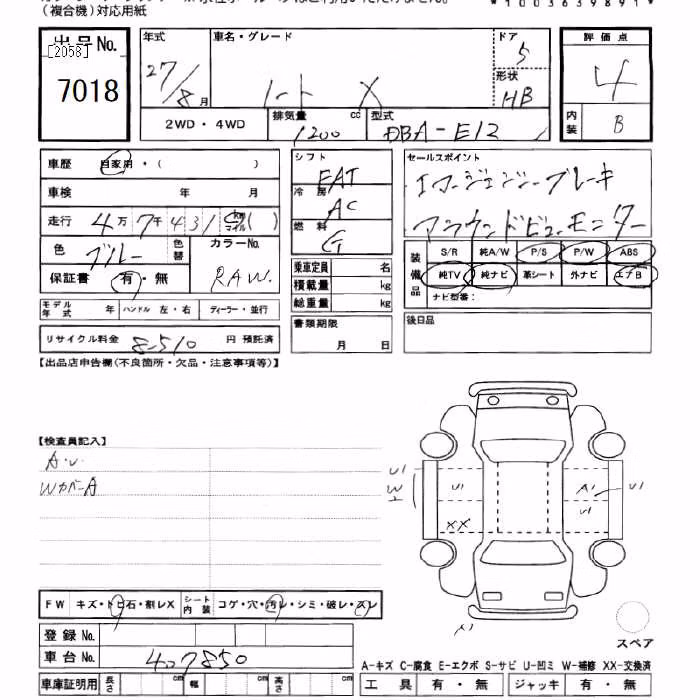 （複合機）対応用紙
出品No. [2058] 7018
年式 27/8月
車名・グレード ノート X
ドア 5
形状 HB
2WD・4WD
排気量 1200 cc
型式 DBA-E12
評価点 4
内装 B
車歴 自家用・( )
車検 年 月
走行 4万7千431 km マイル ( )
色 ブルー 色替
カラーNo. RAW.
保証書 有・無
モデル年式 年 ハンドル 左・右 ディーラー・並行
リサイクル料金 8510 円 預託済
シフト FAT
冷房 AC
燃料 G
乗車定員 名
積載量 kg
総重量 kg
書類期限 月 日
セールスポイント
エマージェンシーブレーキ
アラウンドビューモニター
装備品 S/R 純A/W P/S P/W ABS
純TV 純ナビ 革シート 外ナビ エアB
ナビ型番:
後日品
【出品店申告欄(不良箇所・欠品・注意事項等)】
【検査員記入】
A.U
WカバーA
U1 W U1 A1 U1 U1 XX
FW キズ・トビ石・割レX シート内装 コゲ・穴・汚レ・シミ・破レ・スレ
登録No.
車台No. 407850
車庫証明用 長さ cm 幅 cm 高さ cm
スペア
A-キズ C-腐食 E-エクボ S-サビ U-凹ミ W-補修 XX-交換済
工具 有・無 ジャッキ 有・無